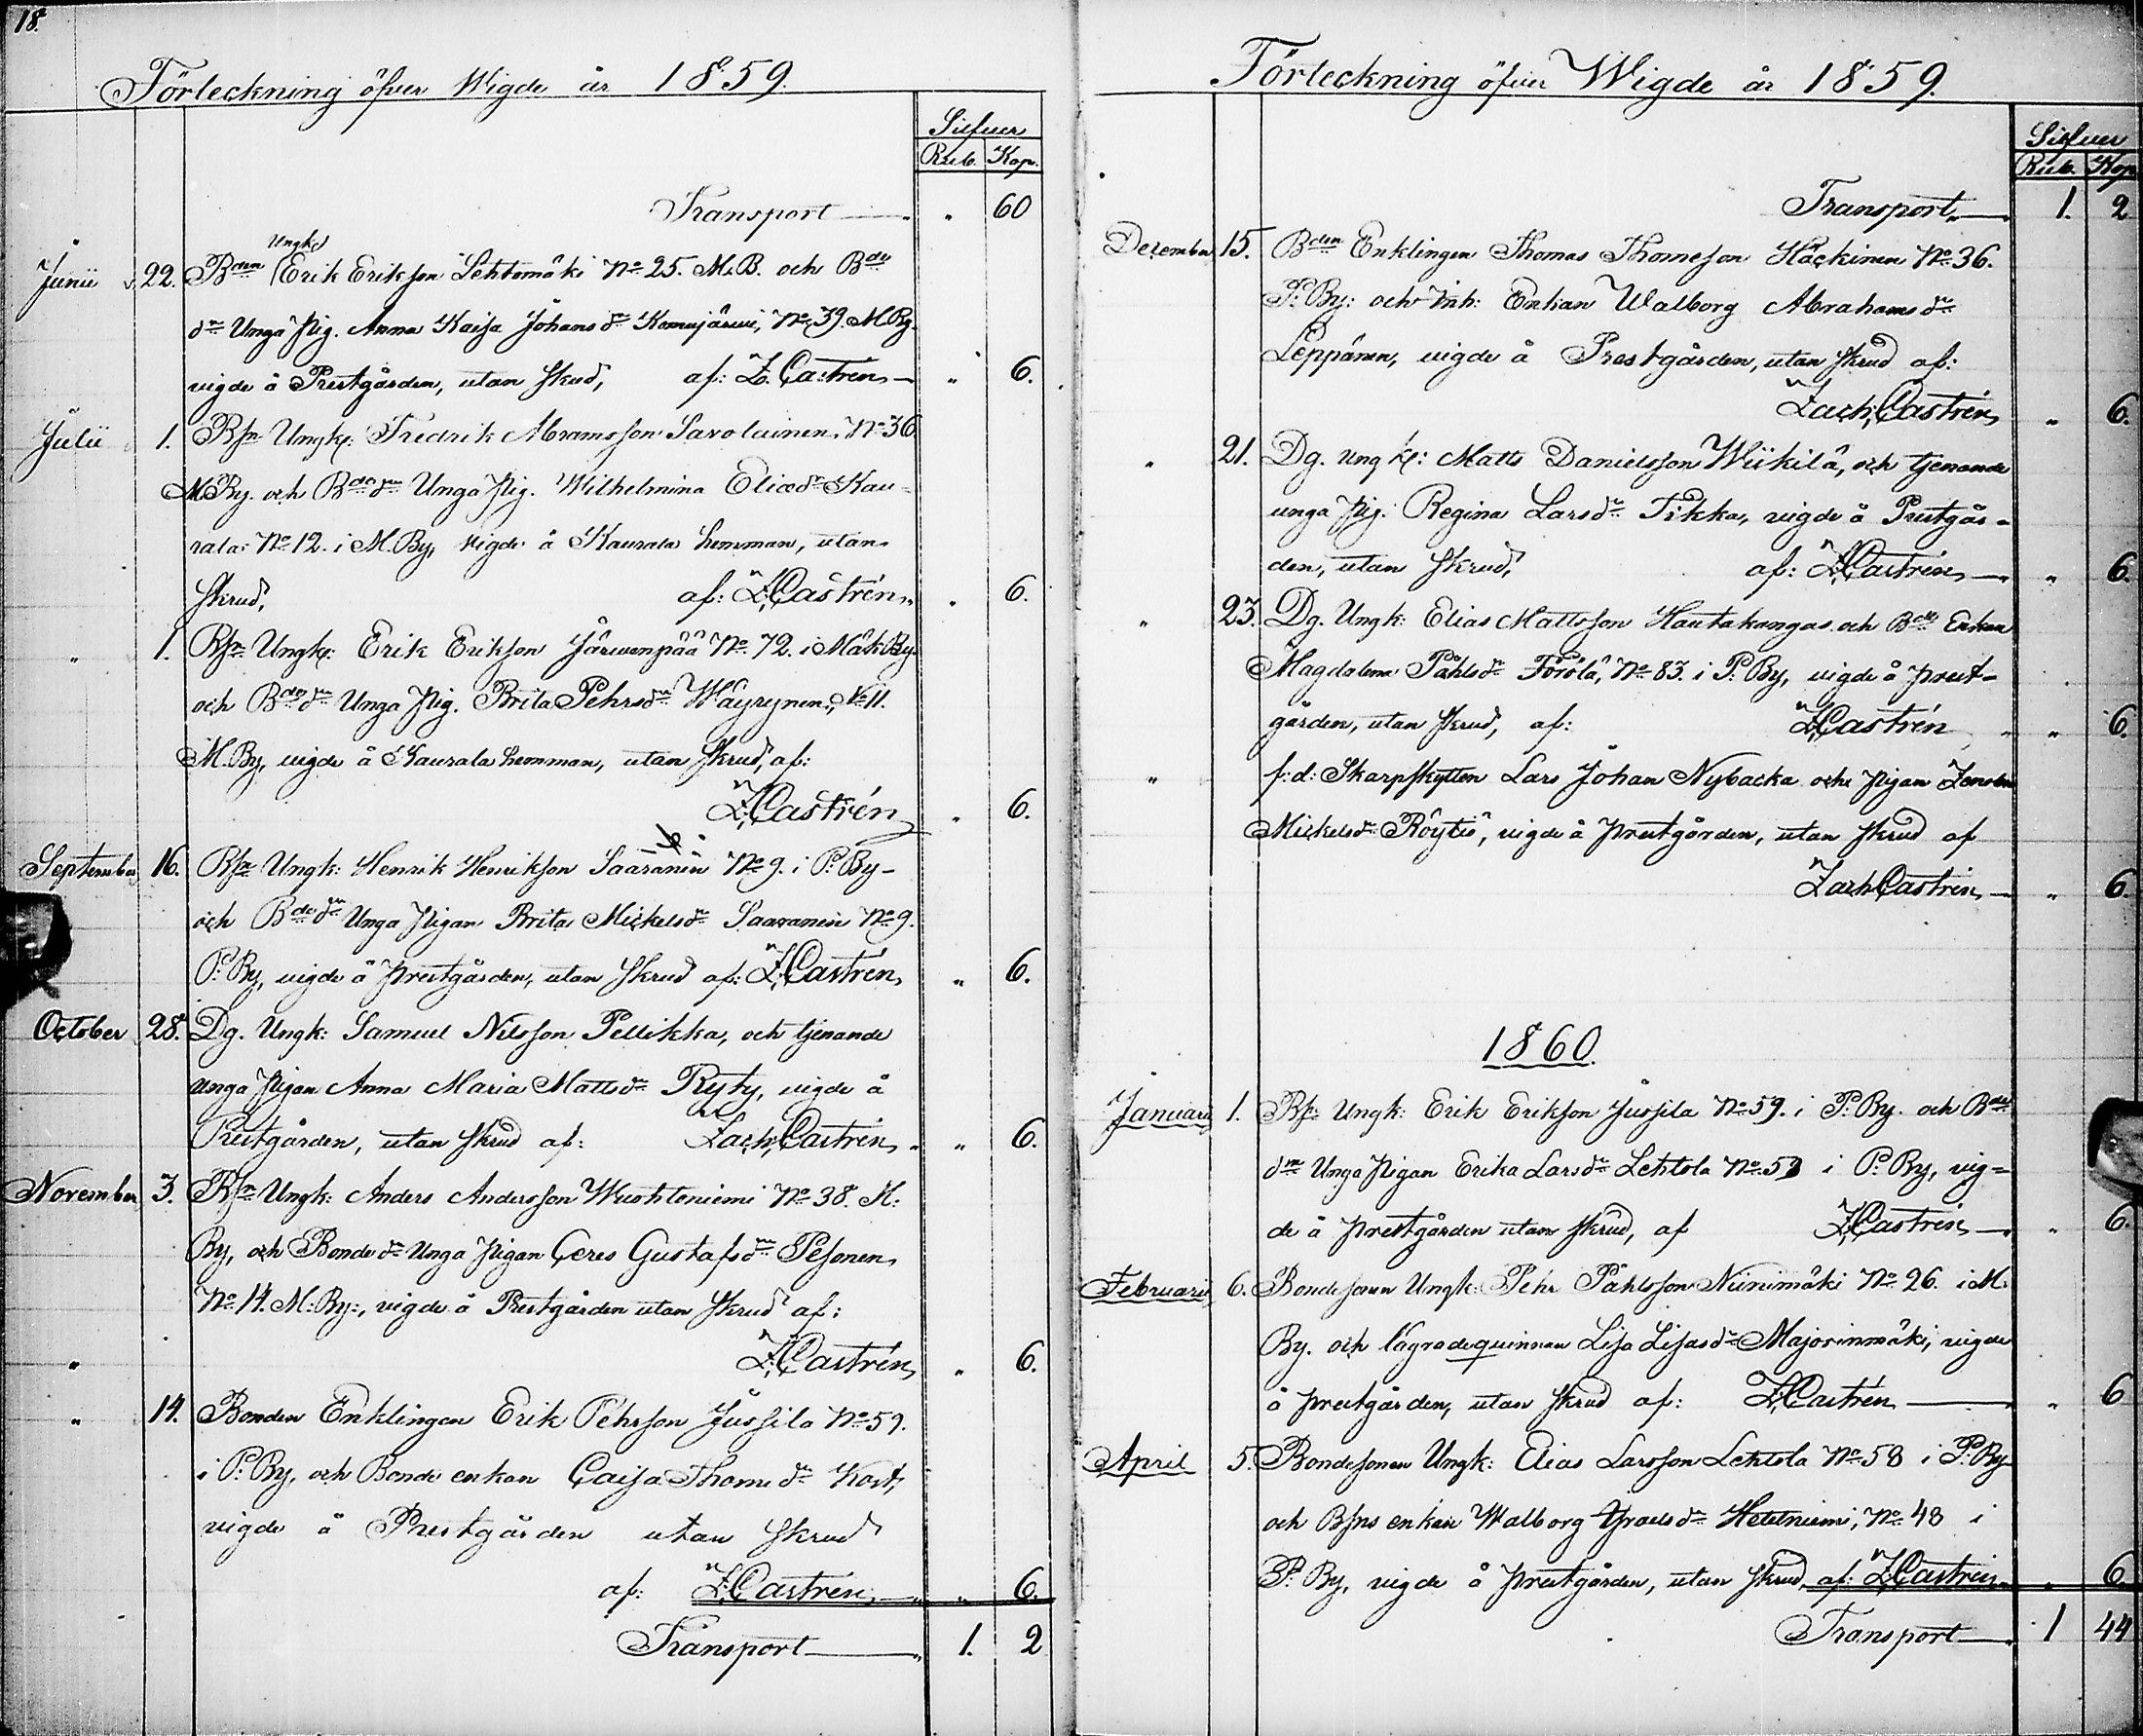 18.
Förteckning öfver Wigde år 1859.
Silfver
Rub. Kop.
Transport " 60
Junii 22. Bden Ungk Erik Erikson Lehtomäki No 25. M.B. och Bde
dr Unga Pig. Anna Kaisa Johans dr Komujärvi, No 39. M.By.
vigde å Prestgården, utan skrud, af: Z. Castrén " 6.
Julii 1. Bsn Ungk: Fredrik Abramsson Savolainen, No 36
M.By. och Bde dr Unga Pig. Wilhelmina Eliædr Kau-
rala No 12. i M.By, vigde å Kaurala hemman, utan
skrud, af: Z. Castrén " 6.
" 1. Bsn Ungk: Erik Erikson Järvenpää No 72. i Mäk.By
och Bde dr Unga Pig. Brita Pehrsdr Wäyrynen, No 11.
M.By, vigde å Kaurala hemman, utan skrud, af:
Z. Castrén " 6.
September 16. Bsn Ungk: Henrik Henrikson Saaranen No 9. i P.By-
och Bde dr Unga Pigan Brita Mickelsdr Saaranen No 9.
P.By, vigde å prestgården, utan skrud af: Z. Castrén " 6.
October 28. Dg. Ungk: Samuel Nilsson Pellikka, och tjenande
unga Pigan Anna Maria Mattsdr Ryty, vigde å
Prestgården, utan skrud af: Zach. Castrén " 6.
November 3. Bsn Ungk: Anders Andersson Wuohteniemi No 38. M:
By, och Bonde dr Unga Pigan Ceres Gustafsdr Pesonen
No 14. M:By:, vigde å Prestgården utan skrud af:
" Z. Castrén " 6.
" 14. Bonden Enklingen Erik Pehrson Jussila No 59.
i P.By, och Bonde enkan Caisa Thomedr Kort,
vigde å Prestgården utan skrud
af: Z. Castrén " 6.
Transport 1. 2
Förteckning öfver Wigde år 1859.
Silfver
Rub. Kop
Transport 1. 2
December 15. Bden Enklingen Thomas Thomeson Häckinen No 36.
P.By: och Inh: Enkan Walborg Abrahamsdr
Leppänen, vigde å Prestgården, utan skrud af:
Zach. Castrén " 6.
" 21. Dg. ungk: Matts Danielsson Wiikilä, och tjenande
unga Pig. Regina Larsdr Tikka, vigde å Prestgår-
den, utan skrud, af: Z. Castrén " 6.
" 23. Dg. Ungk: Elias Mattsson Hautakangas och Bde Enkan
Magdalena Påhlsdr Törölä, No 83. i P.By, vigde å prest-
gården, utan skrud, af: Z. Castrén " 6.
" f:d: Skarpskytten Lars Johan Nybacka och Pigan
Mickelsdr Röytiö, vigde å prestgården, utan skrud af
Zach Castrén " 6
1860.
Januarii 1. Bsn Ungk: Erik Erikson Jussila No 59. i P.By. och Bde
dr Unga Pigan Erika Larsdr Lehtola No 58 i P.By, vig=
de å prestgården utan skrud, af Z. Castrén " 6
Februarii 6. Bondesonen Ungk: Pehr Påhlsson Niinimäki No 26. i M:
By. och lägradequinnan Lisa Lisasdr Majorinmäki, vigde
å prestgården, utan skrud af: Z. Castrén " 6
April 5. Bondesonen Ungk: Elias Larsson Lehtola No 58 i P.By
och Bsns enkan Walborg Israelsdr Heteniemi, No 48 i
P.By, vigde å prestgården, utan skrud, af: Z. Castrén " 6
Transport 1 44